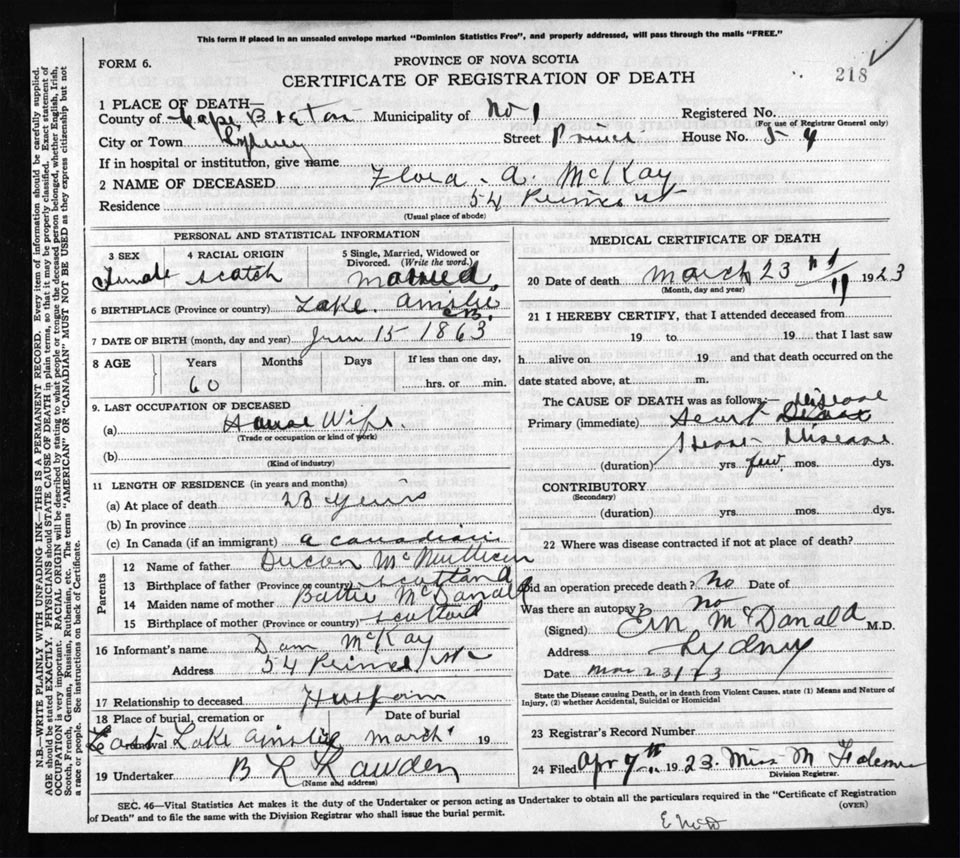 This form if placed in an unsealed envelope marked "Dominion Statistics Free", and properly addressed, will pass through the mails "FREE."
FORM 6.
PROVINCE OF NOVA SCOTIA
CERTIFICATE OF REGISTRATION OF DEATH
218
1 PLACE OF DEATH—
County of Cape Breton Municipality of No 1 Registered No.
(For use of Registrar General only)
City or Town Sydney Street Prince House No. 54
If in hospital or institution, give name
2 NAME OF DECEASED Flora . A. McKay
Residence 54 Prince st
(Usual place of abode)
PERSONAL AND STATISTICAL INFORMATION
3 SEX 4 RACIAL ORIGIN 5 Single, Married, Widowed or Divorced. (Write the word.)
Female Scotch Married
6 BIRTHPLACE (Province or country) Lake Ainslie C.B.
7 DATE OF BIRTH (month, day and year) 15 1863
8 AGE Years Months Days If less than one day,
60 hrs. or min.
9. LAST OCCUPATION OF DECEASED
(a) House Wife.
(Trade or occupation or kind of work)
(b)
(Kind of industry)
11 LENGTH OF RESIDENCE (in years and months)
(a) At place of death 23 years
(b) In province
(c) In Canada (if an immigrant) a canadian
Parents
12 Name of father
13 Birthplace of father (Province or country) Scotland
14 Maiden name of mother McDonald
15 Birthplace of mother (Province or country) Scotland
16 Informant's name Dan McKay
Address 54 Prince st
17 Relationship to deceased
18 Place of burial, cremation or removal Date of burial
East Lake Ainslie March 19
19 Undertaker
(Name and address)
MEDICAL CERTIFICATE OF DEATH
20 Date of death March 23 1923
(Month, day and year)
21 I HEREBY CERTIFY, that I attended deceased from
19 to 19 that I last saw
h alive on 19 and that death occurred on the
date stated above, at m.
The CAUSE OF DEATH was as follows: Disease
Primary (immediate) Heart
Disease
(duration) yrs. few mos. dys.
CONTRIBUTORY
(Secondary)
(duration) yrs. mos. dys.
22 Where was disease contracted if not at place of death?
Did an operation precede death? No Date of
Was there an autopsy? No
(Signed) McDonald M.D.
Address Sydney
Date Mar 23/23
State the Disease causing Death, or in death from Violent Causes, state (1) Means and Nature of Injury, (2) whether Accidental, Suicidal or Homicidal
23 Registrar's Record Number
24 Filed Apr 7th 1923. Miss M
Division Registrar.
SEC. 46—Vital Statistics Act makes it the duty of the Undertaker or person acting as Undertaker to obtain all the particulars required in the "Certificate of Registration
of Death" and to file the same with the Division Registrar who shall issue the burial permit.
(OVER)
N.B.—WRITE PLAINLY WITH UNFADING INK—THIS IS A PERMANENT RECORD. Every item of information should be carefully supplied.
AGE should be stated EXACTLY. PHYSICIANS should STATE CAUSE OF DEATH in plain terms, so that it may be properly classified. Exact statement of
OCCUPATION is very important. RACIAL ORIGIN will be described by stating to what people or tongue the deceased person belonged, whether English, Irish,
Scotch, French, German, Russian, Ruthenian, etc. The terms "AMERICAN" OR "CANADIAN" MUST NOT BE USED as they express citizenship but not
a race or people. See instructions on back of Certificate.